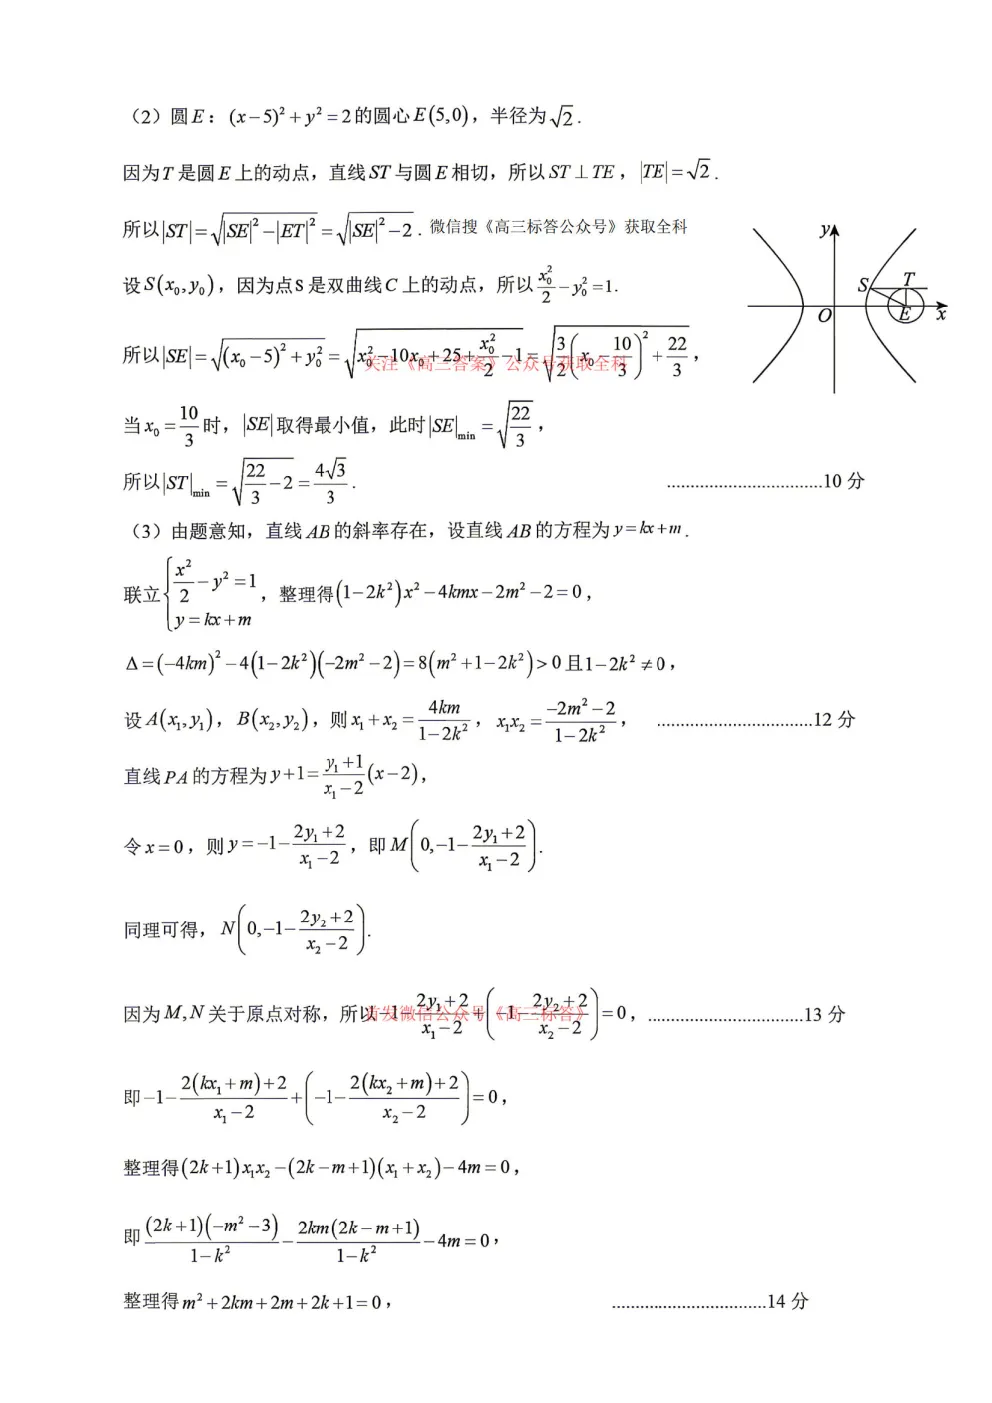 （2）圆E：(x−5)²+y²=2的圆心E(5,0)，半径为√2.
因为T是圆E上的动点，直线ST与圆E相切，所以ST⊥TE，|TE|=√2.
所以|ST|=√(|SE|²−|ET|²)=√(|SE|²−2). 微信搜《高三标答公众号》获取全科
设S(x₀,y₀)，因为点S是双曲线C上的动点，所以x₀²/2−y₀²=1.
所以|SE|=√((x₀−5)²+y₀²)=√(x₀²−10x₀+25+x₀²/2−1)=√(3/2(x₀−10/3)²+22/3)，
关注《高三答案》公众号获取全科
y
S
T
O
E
x
当x₀=10/3时，|SE|取得最小值，此时|SE|min=√(22/3)，
所以|ST|min=√(22/3−2)=4√3/3. .................................10分
（3）由题意知，直线AB的斜率存在，设直线AB的方程为y=kx+m.
联立{x²/2−y²=1，y=kx+m，整理得(1−2k²)x²−4kmx−2m²−2=0，
Δ=(−4km)²−4(1−2k²)(−2m²−2)=8(m²+1−2k²)>0且1−2k²≠0，
设A(x₁,y₁)，B(x₂,y₂)，则x₁+x₂=4km/(1−2k²)，x₁x₂=(−2m²−2)/(1−2k²)， .................................12分
直线PA的方程为y+1=(y₁+1)/(x₁−2)(x−2)，
令x=0，则y=−1−(2y₁+2)/(x₁−2)，即M(0,−1−(2y₁+2)/(x₁−2)).
同理可得，N(0,−1−(2y₂+2)/(x₂−2)).
因为M,N关于原点对称，所以−1−(2y₁+2)/(x₁−2)+(−1−(2y₂+2)/(x₂−2))=0，.................................13分
首发微信公众号《高三标答》
即−1−(2(kx₁+m)+2)/(x₁−2)+(−1−(2(kx₂+m)+2)/(x₂−2))=0，
整理得(2k+1)x₁x₂−(2k−m+1)(x₁+x₂)−4m=0，
即(2k+1)(−m²−3)/(1−k²)−2km(2k−m+1)/(1−k²)−4m=0，
整理得m²+2km+2m+2k+1=0， .................................14分